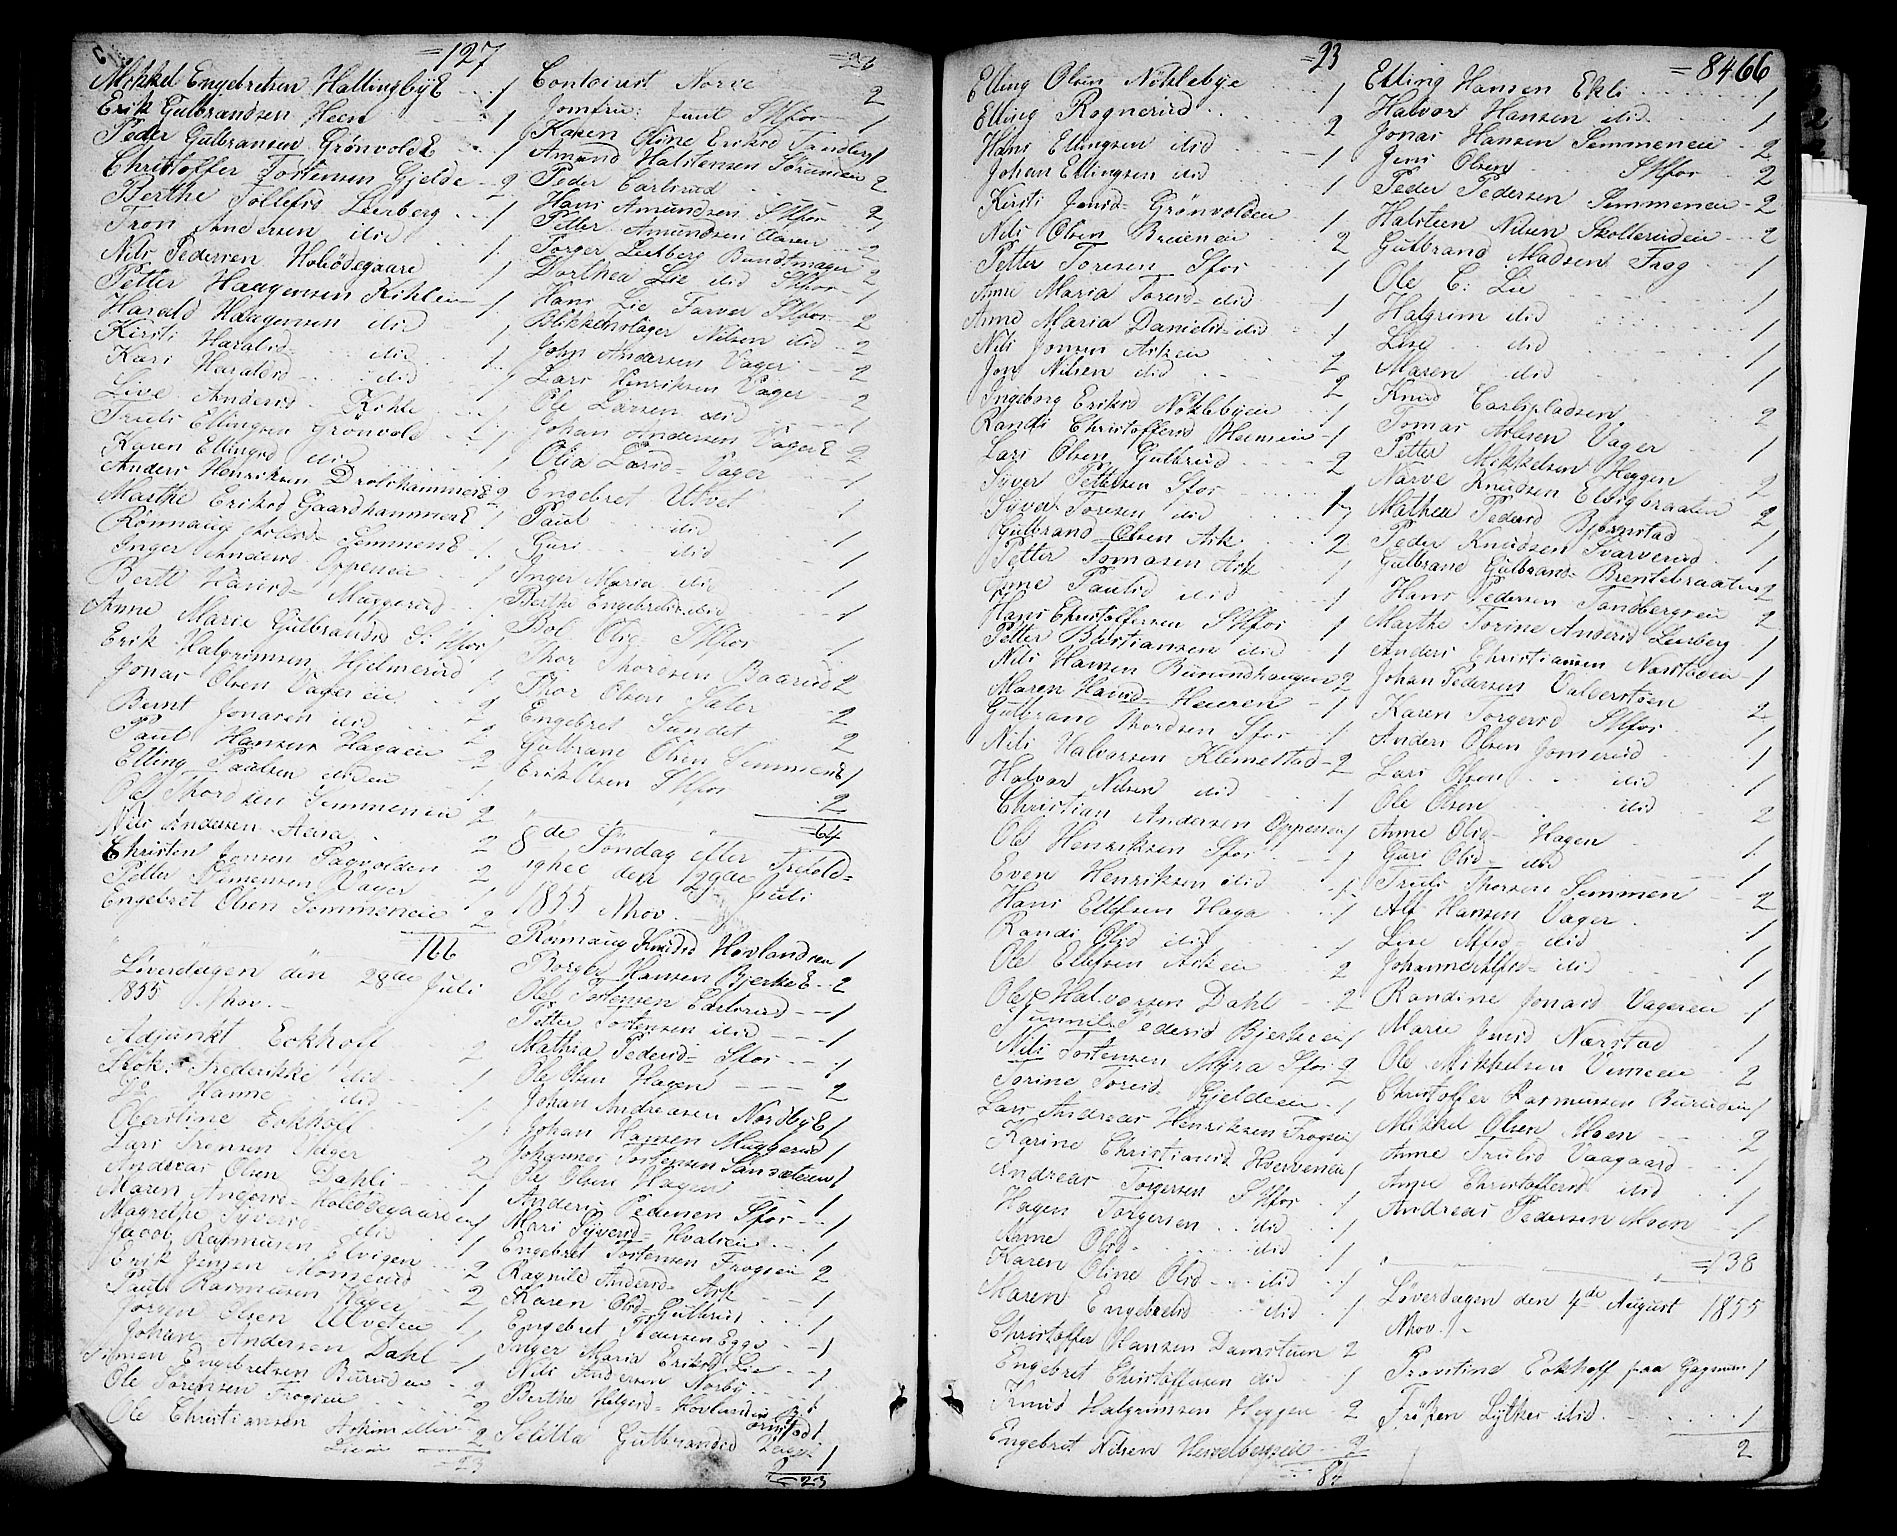 =127
Mikkel Engebretsen HallingbyE 1
Erik Gulbrandsen Heen 1
Peder Gulbransen GrönvoldE 1
Christoffer Tostensen Gjelde 2
Berthe Tollefsd Leerberg 1
Tron Andersen ibid 1
Nils Pedersen Holiödegaare 1
Petter Haagensen Kihleie 1
Harald Haagensen ibid
Kirsti Haralsd= ibid 1
Kari Haraldsd ibid 1
Live Andersd Kihle 1
Truls Ellingsen Grönvold 1
Karen Ellingsd ibid 1
Anders Henriksen DrolshammerE 2
Marthe Eriksd GaardhammerE 1
Rönnaug Arlesd= SemmenE 1
Inger Andersd Oppeneie 1
Berte Hansd= Muggerud 1
Anne Marie Gulbrandsd S: Hfos 1
Erik Halgrimsen Hjelmerud 1
Jonas Olsen Vagereie 2
Bernt Jonasen ibid 2
Paul Hansen Hagaeie 2
Elling Paulsen ibideie 1
Ole Thordsen Semmeneie 2
Nils Andersen Aasa 2
Christen Jonsen Pagvolden 2
Petter Simensen Vager 1
Engebret Olsen Semmeneie 2
166
Löverdagen den 28de Juli
1855 Nhov.
Adjunkt Eckhoff 2
Frök: Frederikke ibid 1
Do Hanne ibid 1
Oberstine Eckhoff 1
Lars Trensen Vager 2
Andreas Olsen Dahli 1
Maren Andersd= Holeödegaareneie 1
Magrethe Syversd= ibid 1
Jacob Rasmusen Elvigen 2
Erik Jensen Monserud 2
Paul Rasmusen Vager 1
Jorgen Olsen Ulveteie 1
Johan Andersen Dahl 1
Simen Engebretsen Buruden 2
Ole Sörensen Frogeie 2
Ole Christiansen Askim eller Lieie 2
=23
=23
Contoirist Norie 2
Jomfru: Juul SHfos 1
Karen Oline Eriksd Tanberg 1
Amund Halstensen Sörumeie 2
Peder Carlsrud 2
Hans Amundsen SHfos 2
Petter Amundsen Aasen 2
Torger Leerberg Buntmager 2
Dorthea Lie ibid SHfos 1
Hans Lie Farver SHfos 2
Blikkenslager Nilsen ibid 2
John Andersen Vager 2
Lars Henriksen Vager 2
Ole Larsen ibid
Johan Andersen VagerE 2
Olia Larsd= Vager 1
Engebret Ulvet 1
Paul ibid 1
Guri ibid 1
Inger Maria ibid 1
Berthe Engebretsd ibid 1
Bol Olsd SHfos 1
Thor Thoresen Baarud 2
Thor Olsen Sæter 2
Engebret Sundet 2
Gulbrand Olsen SemmenE 1
Erik Olsen SHfos 2
=64
8de Söndag efter Trefold=
ighed den 29de Juli
1855 Nhov.
Rönnaug Knudsd Hovlandseie 1
Borger Hansen BjerkeE 2
Ole Tostensen Carlsrud 1
Petter Tostensen ibid 1
Mathea Pedersd= Sfos 1
Ole Olsen Hagen 2
Johan Andreasen NordbyE 1
Johan Hansen Muggerud 1
Johannes Tostensen Sandaker 1
Ole Olsen Hagen 1
Anders Pedersen Sfos 1
Mari Syversd= Hvaleie 1
Engebret Tostensen Frogeie 2
Ragnild Andersd= Ask 1
Karen Olsd= Gulbrud 1
Engebret Pedersen Egge 1
Inger Maria Eriksd Lie 1
Nils Andersen Norby 1
Berthe Helgesd= Hovlandeie 1
Gulbrandsd 1
=23
=23
Elling Olsen Nöklebye 1
Elling Rognerud 2
Hans Ellingsen ibid 1
Johan Ellingsen ibid 1
Kirsti Jonsd= Grönvoldeie 1
Nils Olsen Breieneie 2
Petter Toresen Sfos 1
Anne Maria Toresd= ibid 1
Anne Maria Danielsd= ibid 1
Nils Jonsen Askeie 2
Jon Nilsen ibid 2
Ingeborg Eriksd Nöklebyeie 1
Randi Christoffersd Heeneie 1
Lars Olsen Gulbrud 2
Syver Pettersen Sfos 1
Syver Toresen ibid 1
Gulbrand Olsen Ask 2
Petter Tomasen Ask 1
Anne Paulsd ibid 1
Hans Christoffersen SHfos 1
Petter Bastiansen ibid 1
Nils Hansen Burunshaugen 2
Maren Hansd= Heieren 1
Gulbrand Thordsen Sfos 1
Nils Halvorsen Klemetstad 2
Halvor Nilsen ibid 1
Christian Andersen Oppeneie 1
Ole Henriksen Sfos 1
Even Henriksen ibid 1
Hans Ellefsen Haga 1
Randi Olsd ibid 1
Ole Ellefsen Askeie 2
Ole Halvorsen Dahl 2
Gunnild Pedersd Bjerkeeie 1
Nils Tostensen Myra Sfos 2
Torine Toresd= Gjeldeeie 1
Lars Andreas Henriksen Frogeie 1
Karine Christiansd Kverveneie 1
Andreas Torgersen SHfos 1
Hagen Torgersen ibid 1
Anne Olsd ibid 1
Karen Oline Olsd ibid 1
Maren Engebretsd ibid 1
Christoffer Hansen Damstuen 2
Engebret Christoffersen ibid 1
Knud Halgrimsen Heggen 2
Engebret Nilsen Hesselbergeie 2
84
=8466
Elling Hansen Ekli 1
Halvor Hansen ibid 1
Jonas Hansen Semmeneie 2
Jens Olsen SHfos 2
Peder Pedersen Semmeneie 2
Halsteen Nilsen Skollerudeie 2
Gulbrand Madsen Frog 1
Ole C: Lie 1
Halgrim ibid 1
Lise ibid 1
Maren ibid 1
Knud Carlspladsen 2
Tomas Atlesen Vager 1
Petter Mikkelsen Heggen 2
Narve Knudsen Elvigbraaten 2
Mathea Pedersd Bjørnstad 1
Peder Knudsen Svarverud 1
Gulbrand Gulbrands= Brentebraaten 2
Hans Pedersen Tandbergeie 2
Marthe Torine Andersd Leerberg 1
Anders Christiansen Narstadeie 1
Johan Pedersen Valderstöen 2
Karen Torgersd SHfos 1
Anders Olsen Jonserud 1
Lars Olsen ibid 1
Ole Olsen ibid 2
Anne Olsd= Hagen 1
Guri Olsd= ibid 1
Truls Thorsen Semmen 2
Alf Hansen Vager 1
Lise Alfsd= ibid 1
Johannes Alfs= ibid 1
Randine Jonasd Vagereie 1
Marie Jensd Nærstad 1
Ole Mikkelsen Vimeeie 2
Christoffer Rasmussen Burudeie 1
Mikkel Olsen Moen 2
Anne Trulsd Vaagaard 1
Anne Christoffersd ibid 1
Andreas Pedersen Moen 1
=138
Löverdagen den 4de August 1855
Nhov.
Provstinde Eckhoff paa Gagnum 1
Fröken Lytkes ibid. 1
2